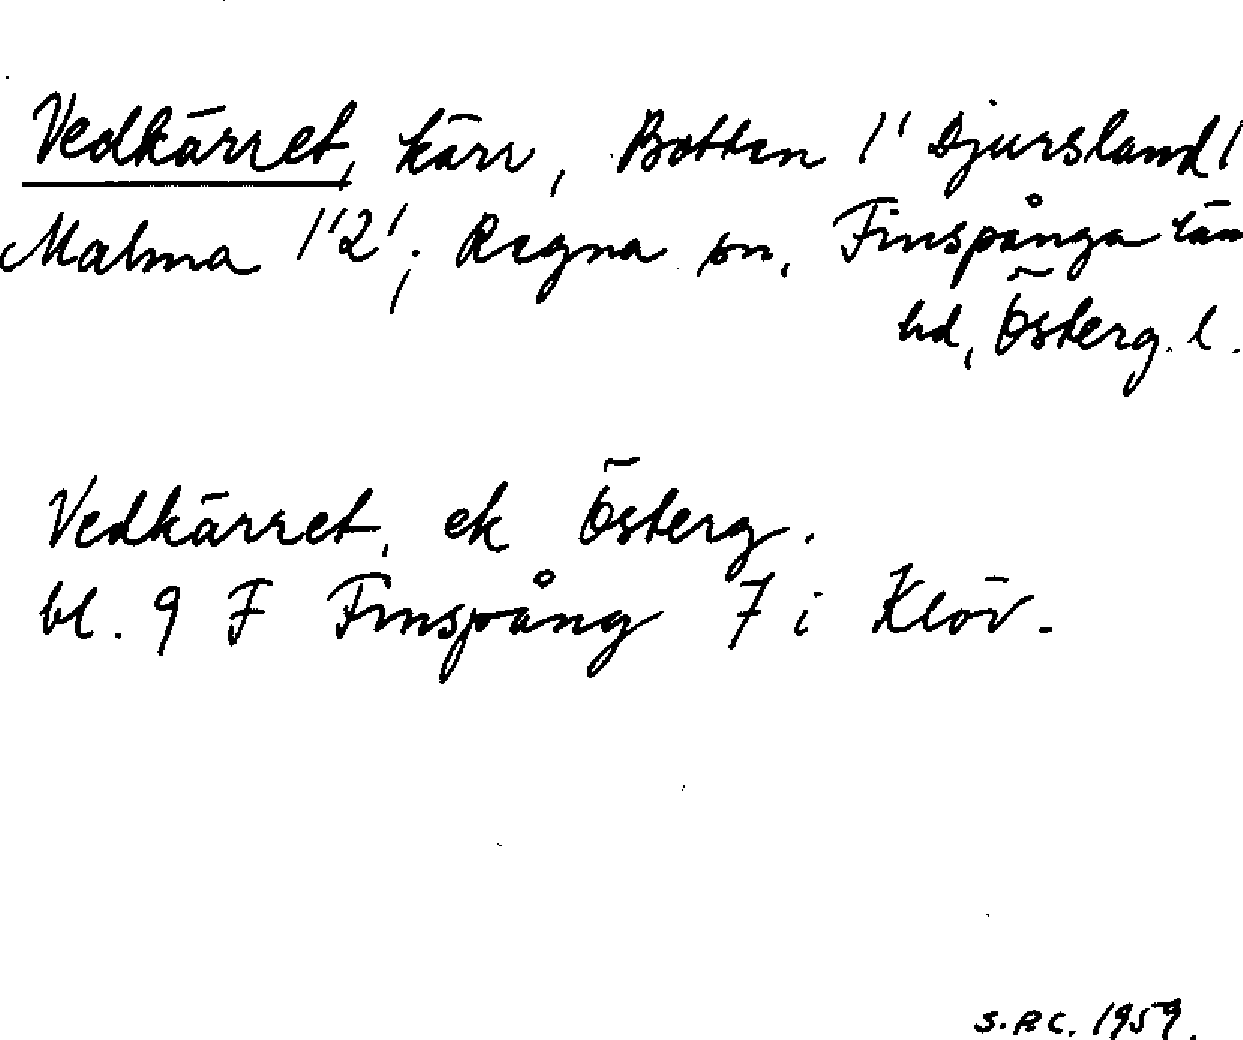 Vedkärret, kärr, Botten 1' Djursland 1
Malma 1'2'; Regna sn, Finspånga län
hd, Österg. l.
Vedkärret, ek Österg.
bl. 9 F Finspång 7 i Klöv.
S.R.C. 1959.